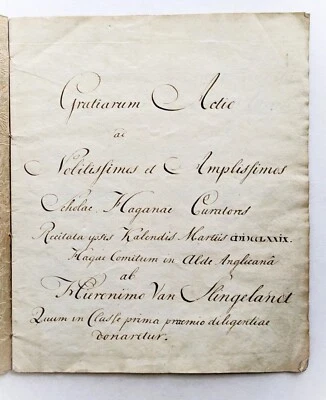 Gratiarum Actio
ad
Nobilissimos et Amplissimos
Scholae Haganae Curatores
Recitata ipsis Kalendis Martiis
Hagae Comitum in Aede Anglicanâ
ab
Hieronimo Van Slingelandt
Quum in Classe prima praemio diligentiae
donaretur.